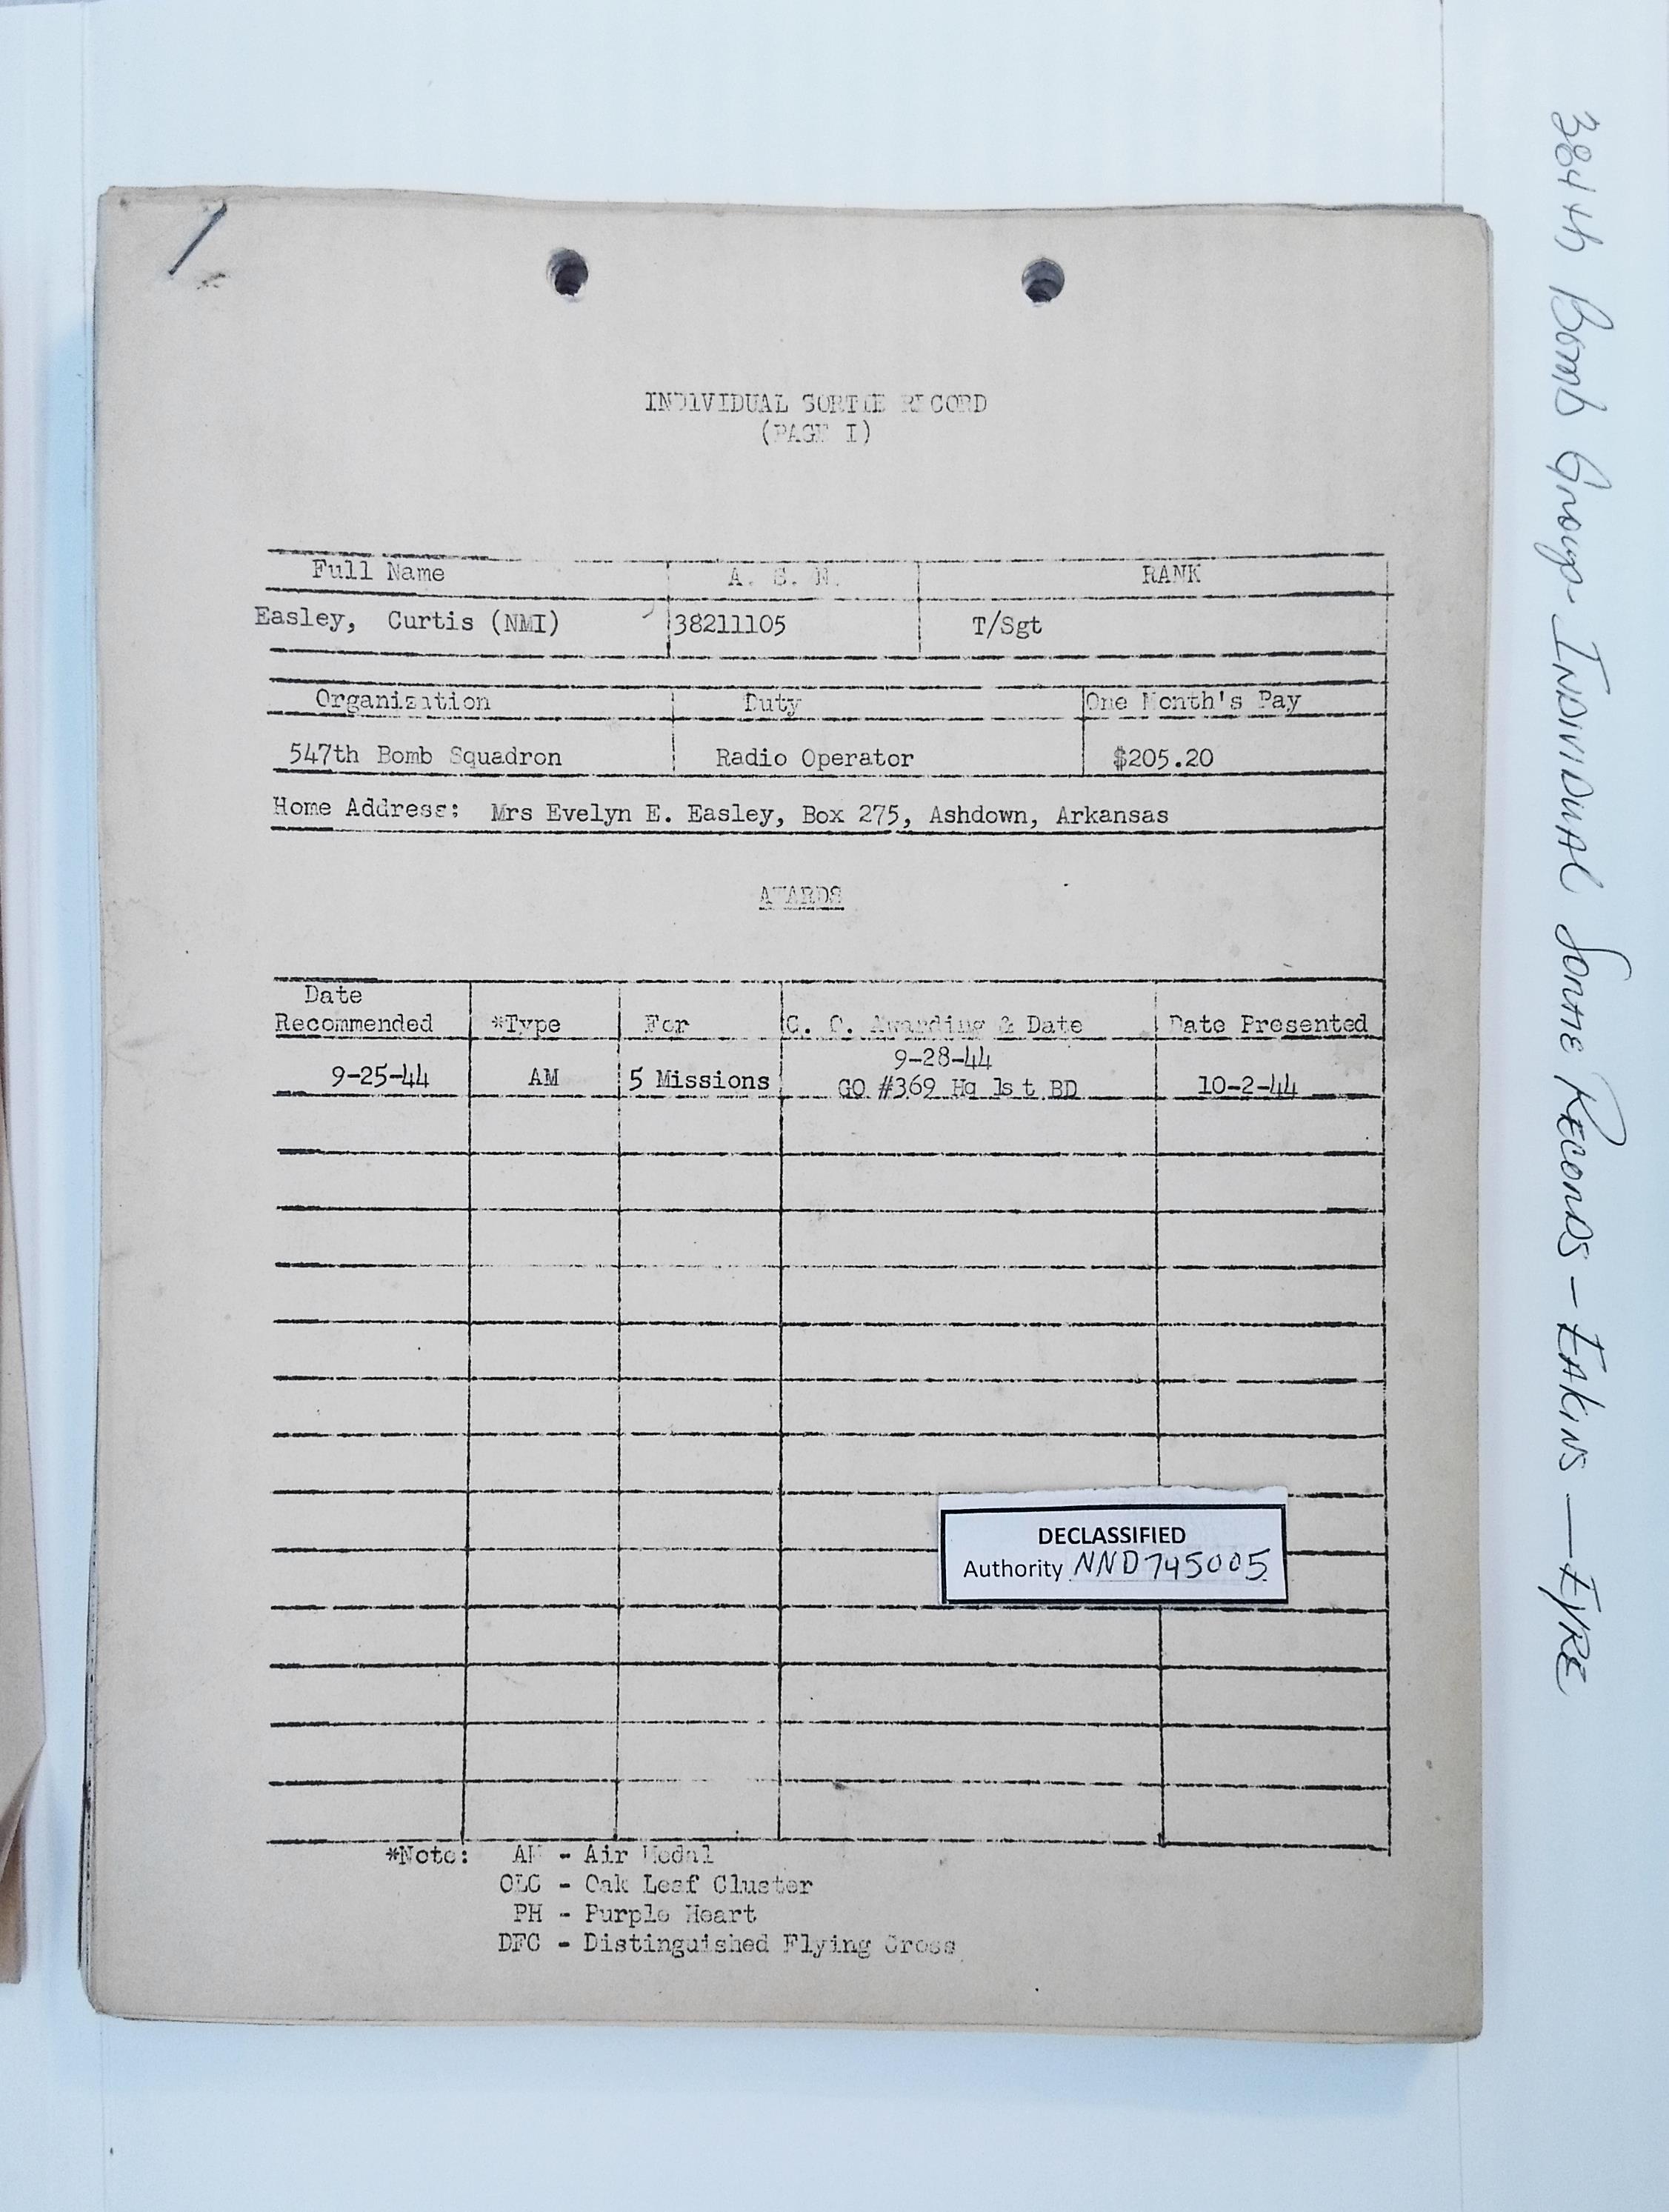 INDIVIDUAL SORTIE RECORD
(PAGE I)
Full Name A. S. N. RANK
Easley, Curtis (NMI) 38211105 T/Sgt
Organization Duty One Month's Pay
547th Bomb Squadron Radio Operator $205.20
Home Address: Mrs Evelyn E. Easley, Box 275, Ashdown, Arkansas
AWARDS
Date
Recommended *Type For G. O. Awarding & Date Date Presented
9-28-44
9-25-44 AM 5 Missions GO #369 Hq 1st BD 10-2-44
DECLASSIFIED
Authority NND745005
*Note: AM - Air Medal
OLC - Oak Leaf Cluster
PH - Purple Heart
DFC - Distinguished Flying Cross
384th Bomb Group - INDIVIDUAL SORTIE RECORDS - EAKINS — EYRE